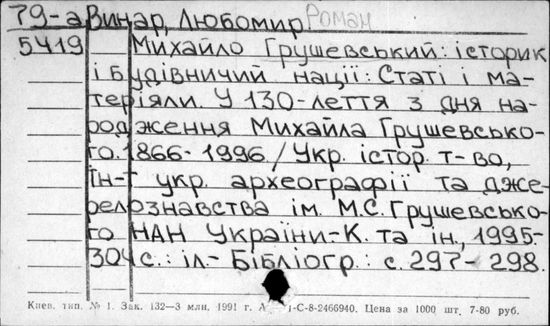 79-а Винар, Любомир Роман
5419 Михайло Грушевський: історик
і будівничий нації: Статі і ма-
теріяли. У 130-ліття з дня на-
родження Михайла Грушевсько-
го. 1866-1996 / Укр. істор. т-во,
Ін-т укр. археографії та дже-
релознавства ім. М.С. Грушевсько-
го НАН України.-К. та ін., 1995.-
304 с.: іл.- Бібліогр.: с. 297- 298.
Киев. тип. № 1. Зак. 132—3 млн. 1991 г. 1-С-8-2466940. Цена за 1000 шт. 7-80 руб.